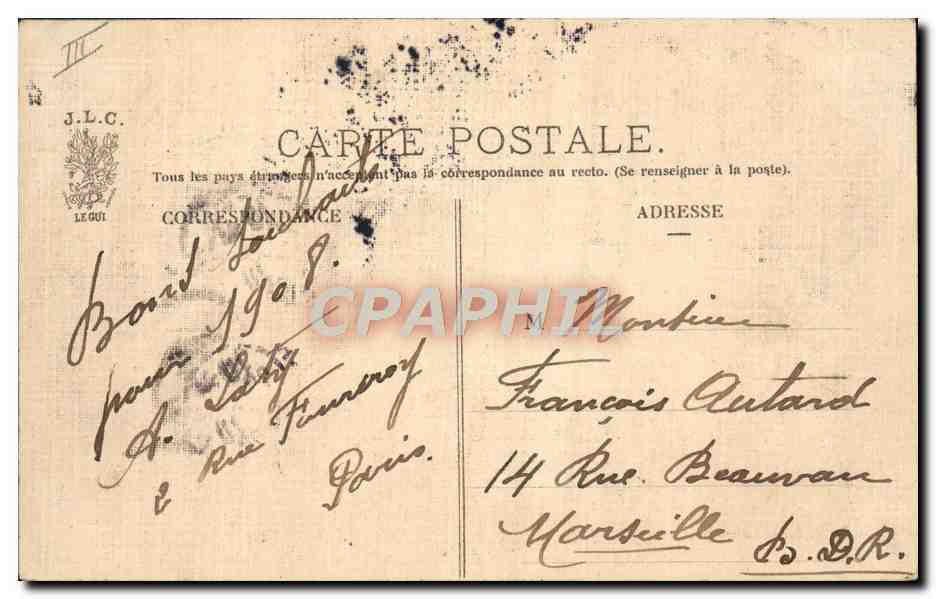 III
J.L.C.
LE GUI
CARTE POSTALE.
Tous les pays étrangers n'acceptent pas la correspondance au recto. (Se renseigner à la poste).
CORRESPONDANCE
ADRESSE
Bons souhaits
pour 1908.
A.
2 Rue Fourcroy
Paris.
CPAPHIL
M. Monsieur
François Autard
14 Rue Beauvau
Marseille B.D.R.